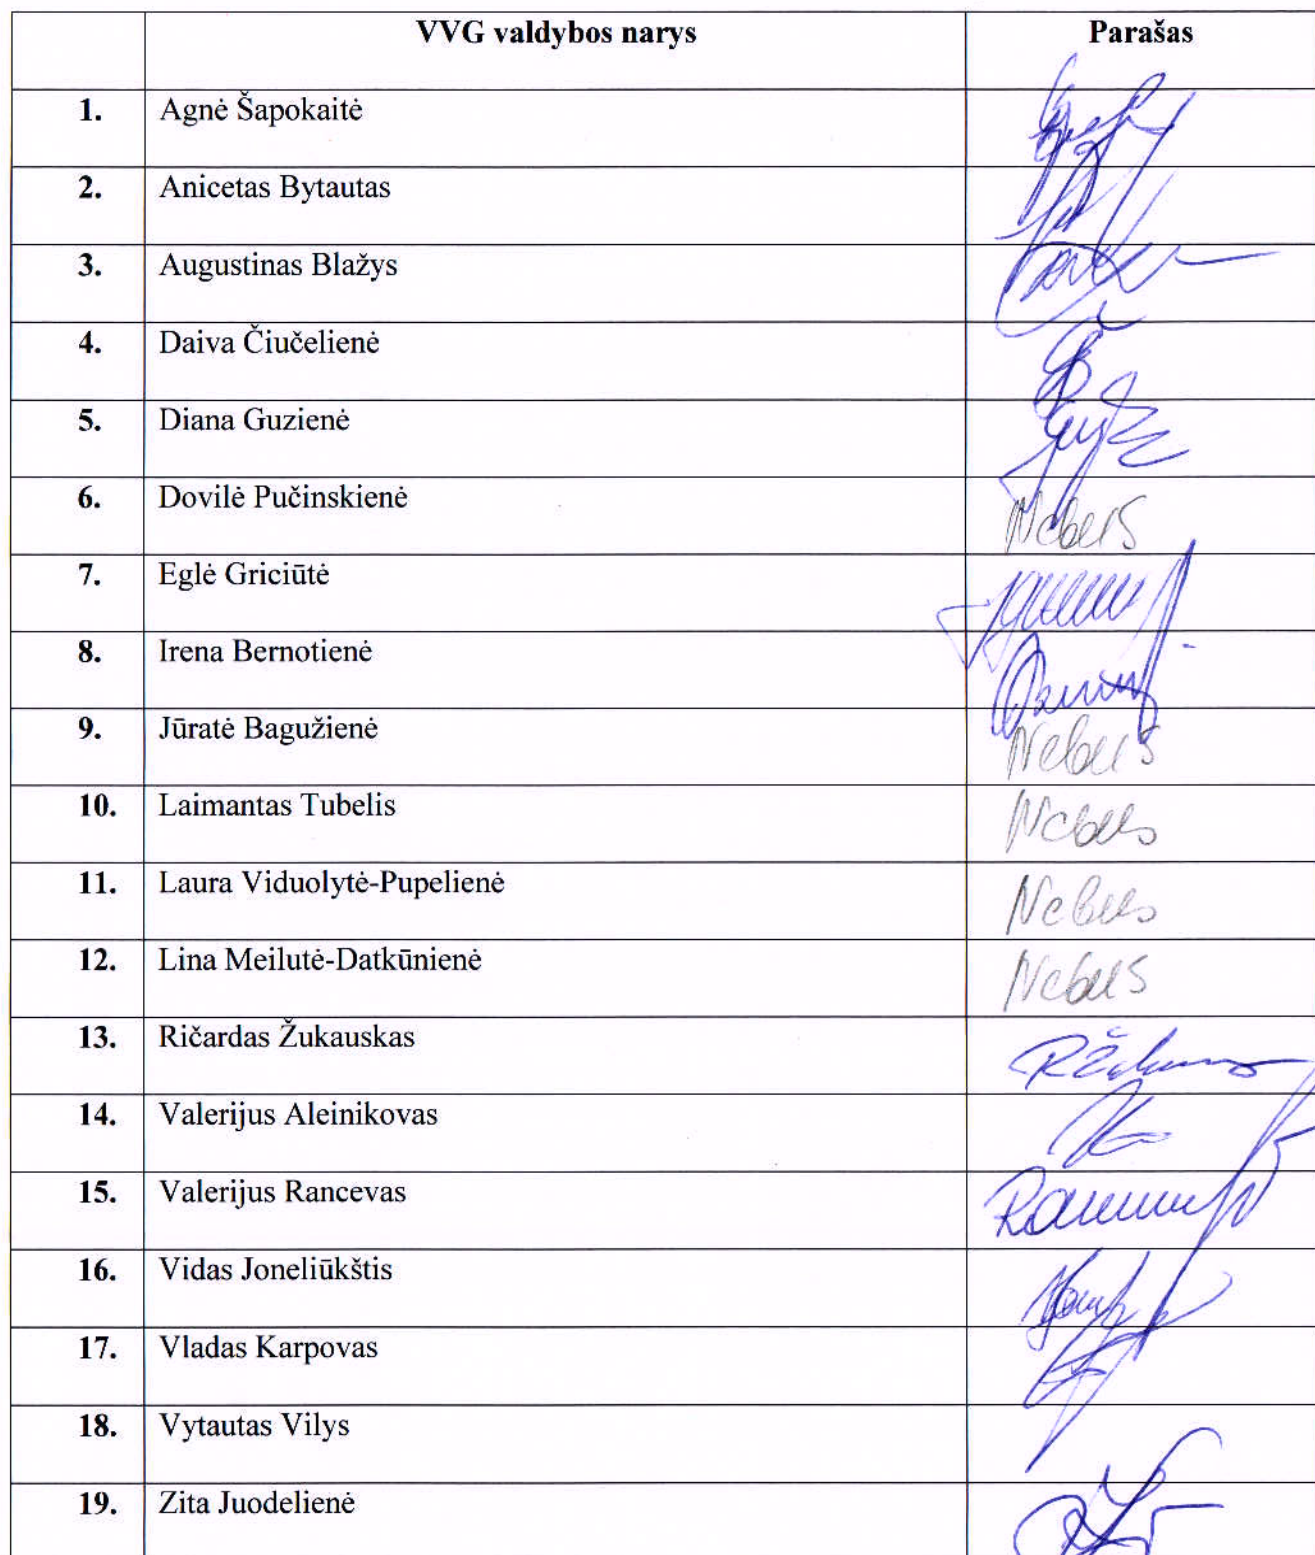 VVG valdybos narys Parašas
1. Agnė Šapokaitė
2. Anicetas Bytautas
3. Augustinas Blažys
4. Daiva Čiučelienė
5. Diana Guzienė
6. Dovilė Pučinskienė Nebus
7. Eglė Griciūtė
8. Irena Bernotienė
9. Jūratė Bagužienė Nebus
10. Laimantas Tubelis Nebus
11. Laura Viduolytė-Pupelienė Nebus
12. Lina Meilutė-Datkūnienė Nebus
13. Ričardas Žukauskas
14. Valerijus Aleinikovas
15. Valerijus Rancevas
16. Vidas Joneliūkštis
17. Vladas Karpovas
18. Vytautas Vilys
19. Zita Juodelienė